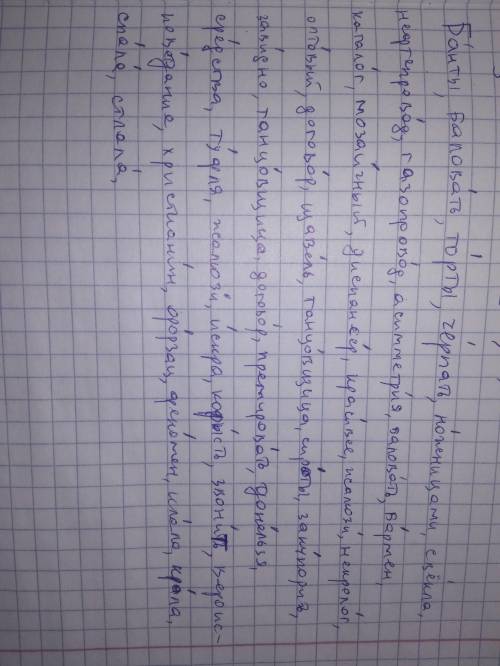 Ба́нты, балова́ть, то́рты, че́рпать, но́жницами, свёкла,
нефтепрово́д, газопрово́д, асимметри́я, балова́ть, ба́рмен,
катало́г, мозаи́чный, диспансе́р, краси́вее, жалюзи́, некроло́г,
опто́вый, догово́р, щаве́ль, танцо́вщица, сиро́ты, заку́порив,
зави́дно, танцо́вщица, догово́р, премирова́ть, до́нельзя,
сре́дства, ту́фля, жалюзи́, и́скра, коры́сть, звони́т, вероис-
пове́дание, христиани́н, фо́рзац, фено́мен, кра́ла,
спала́, стлала́,